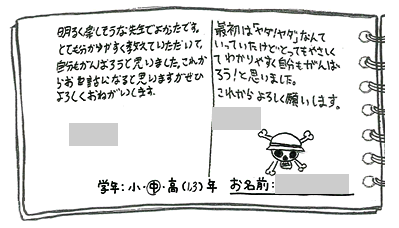 明るく楽しそうな先生でよかったです。
とても分かりやすく教えていただいて、
自分もがんばろうと思いました。これか
らお世話さんになると思いますがぜひ
よろしくおねがいします。
最初は「ヤダ!ヤダ」なんて
いっていたけどとってもやさしく
てわかりやすく自分もがんば
ろう!と思いました。
これからよろしく願いします。
学年:小・中・高(1,3)年 お名前: